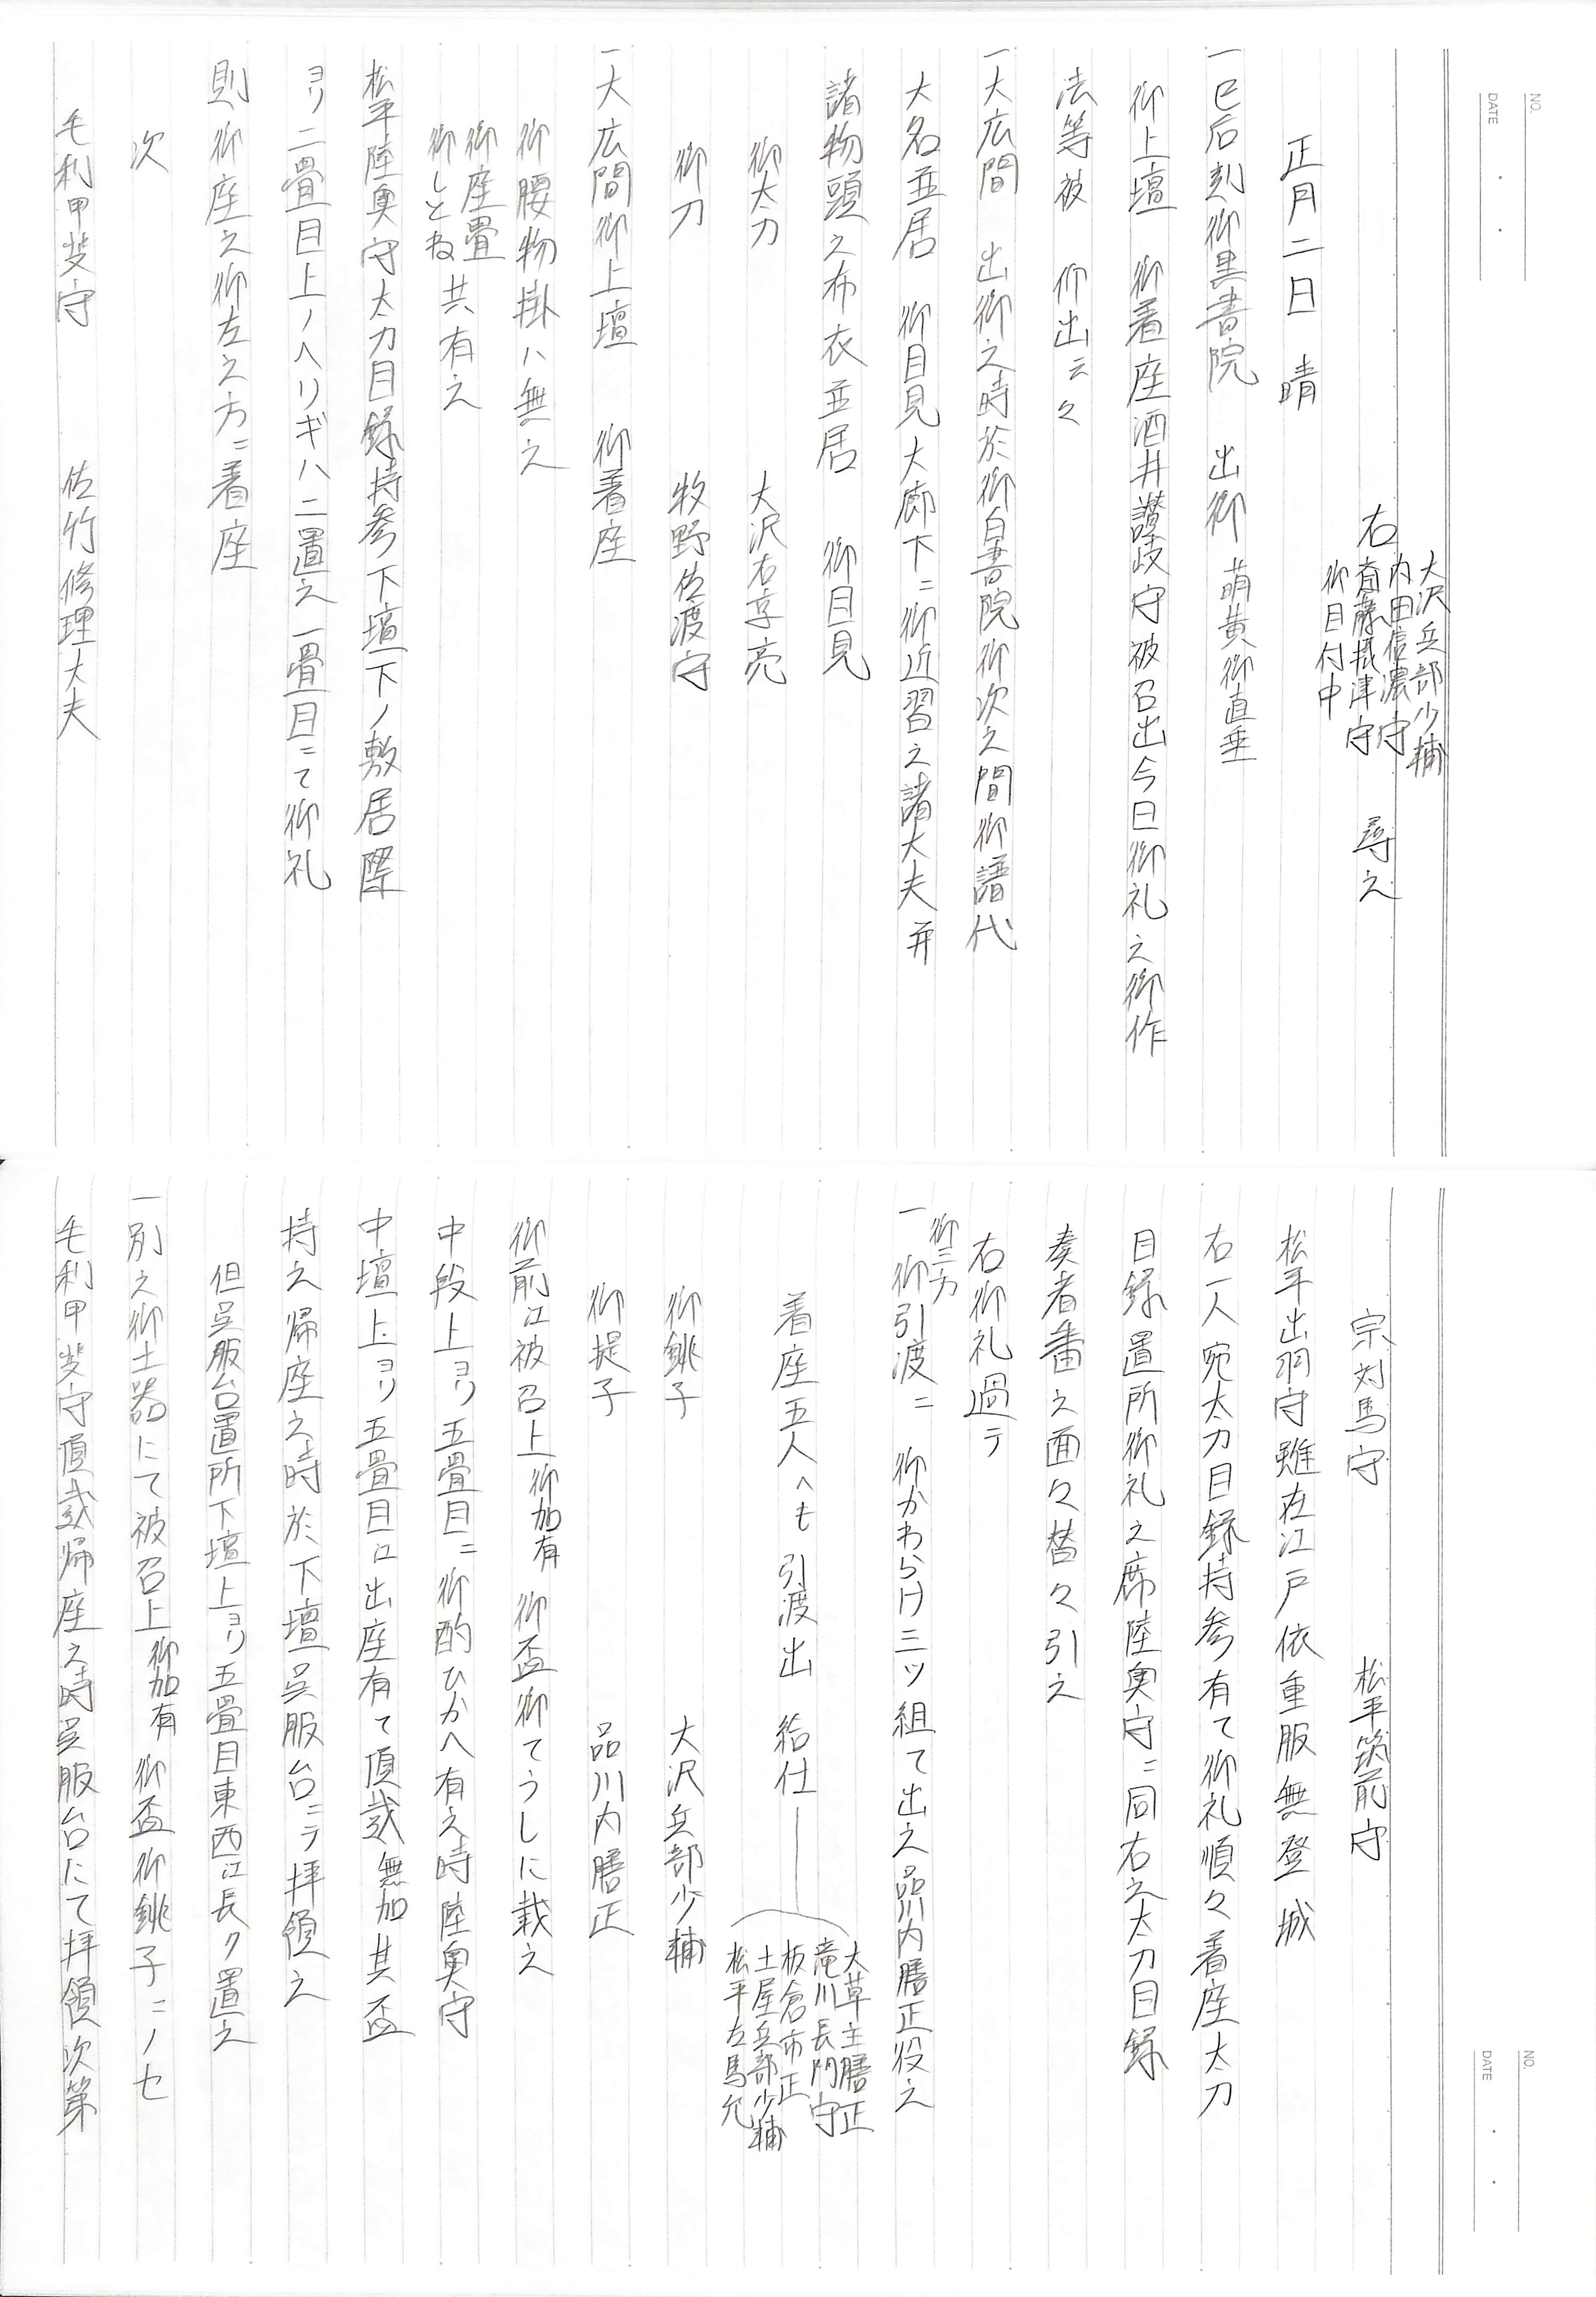 NO.
DATE
右 大沢兵部少輔 内田信濃守 斎藤摂津守 御目付中 尋之
正月二日 晴
一巳后刻御黒書院 出御 萌黄御直垂
御上壇 御着座酒井讃岐守被召出今日御礼之御作
法等被 仰出云々
一大広間 出御之時於御白書院御次之間御譜代
大名並居 御目見大廊下ニ御近習之諸大夫并
諸物頭之布衣並居 御目見
御太刀 大沢右京亮
御刀 牧野佐渡守
一大広間御上壇 御着座
御腰物掛ハ無之
御座畳 御しとね 共有之
松平陸奥守太刀目録持参下壇下ノ敷居際
ヨリ二畳目上ノヘリギハニ置之一畳目ニて御礼
則御座之御左之方ニ着座
次
毛利甲斐守 佐竹修理大夫
NO.
DATE
宗対馬守 松平筑前守
松平出羽守雖在江戸依重服無登城
右一人宛太刀目録持参有て御礼順々着座太刀
目録置所御礼之席陸奥守ニ同右之太刀目録
奏者番之面々替々引之
右御礼過テ
一御三方 御引渡ニ 御かわらけ三ツ組て出之品川内膳正役之
着座五人へも引渡出 給仕 大草主膳正 滝川長門守 板倉市正 土屋兵部少輔 松平左馬允
御銚子 大沢兵部少輔
御提子 品川内膳正
御前江被召上御加有 御盃御てうしに載之
中段上ヨリ五畳目ニ御酌ひかへ有之時陸奥守
中壇上ヨリ五畳目江出座有て頂戴無加其盃
持之帰座之時於下壇呉服台ニテ拝領之
但呉服台置所下壇上ヨリ五畳目東西江長ク置之
一別之御土器にて被召上御加有 御盃御銚子ニノセ
毛利甲斐守頂戴帰座之時呉服台にて拝領次第